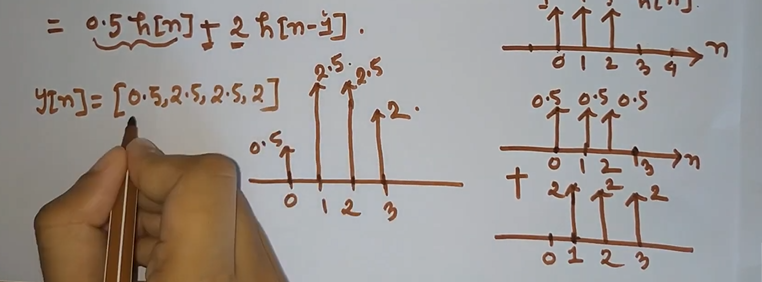 = 0.5 h[n] + 2 h[n-1].
y[n] = [0.5, 2.5, 2.5, 2]
0.5 2.5. 2.5 2.
0 1 2 3
h[n]
0 1 2 3 4 n
0.5 0.5 0.5
0 1 2 3 n
+
2 2 2
0 1 2 3